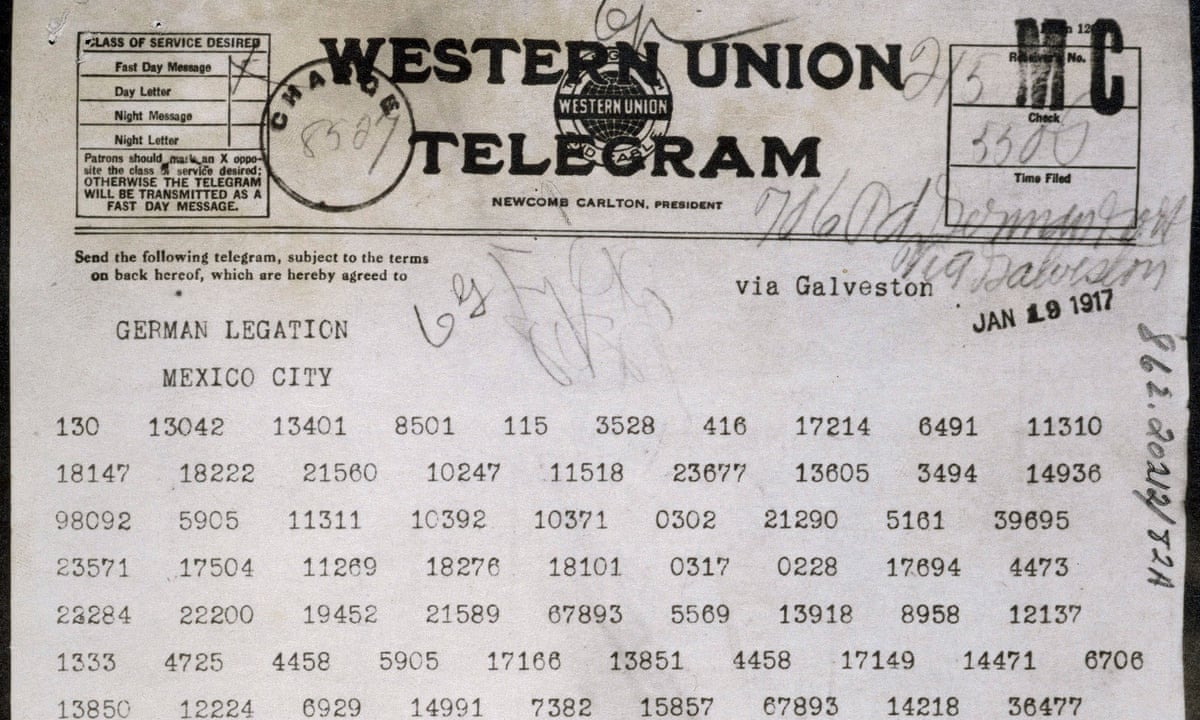 CLASS OF SERVICE DESIRED
Fast Day Message
Day Letter
Night Message
Night Letter
Patrons should mark an X oppo-
site the class of service desired;
OTHERWISE THE TELEGRAM
WILL BE TRANSMITTED AS A
FAST DAY MESSAGE.
CHARGE
WESTERN UNION
WESTERN UNION
TELEGRAM
NEWCOMB CARLTON, PRESIDENT
Receiver's No.
C
Check
Time Filed
Send the following telegram, subject to the terms
on back hereof, which are hereby agreed to
via Galveston
via Galveston
JAN 19 1917
GERMAN LEGATION
MEXICO CITY
130 13042 13401 8501 115 3528 416 17214 6491 11310
18147 18222 21560 10247 11518 23677 13605 3494 14936
98092 5905 11311 10392 10371 0302 21290 5161 39695
23571 17504 11269 18276 18101 0317 0228 17694 4473
22284 22200 19452 21589 67893 5569 13918 8958 12137
1333 4725 4458 5905 17166 13851 4458 17149 14471 6706
13850 12224 6929 14991 7382 15857 67893 14218 36477
862.20212/82A